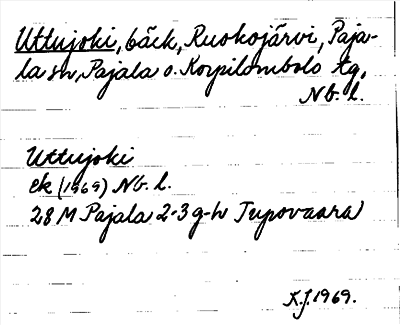 Uttujoki, bäck, Ruokojärvi, Paja-
la sn, Pajala o. Korpilombolo tg,
Nb. l.
Uttujoki
ek (1969) Nb. l.
28 M Pajala 2-3 g-h Tupovaara
K.J. 1969.